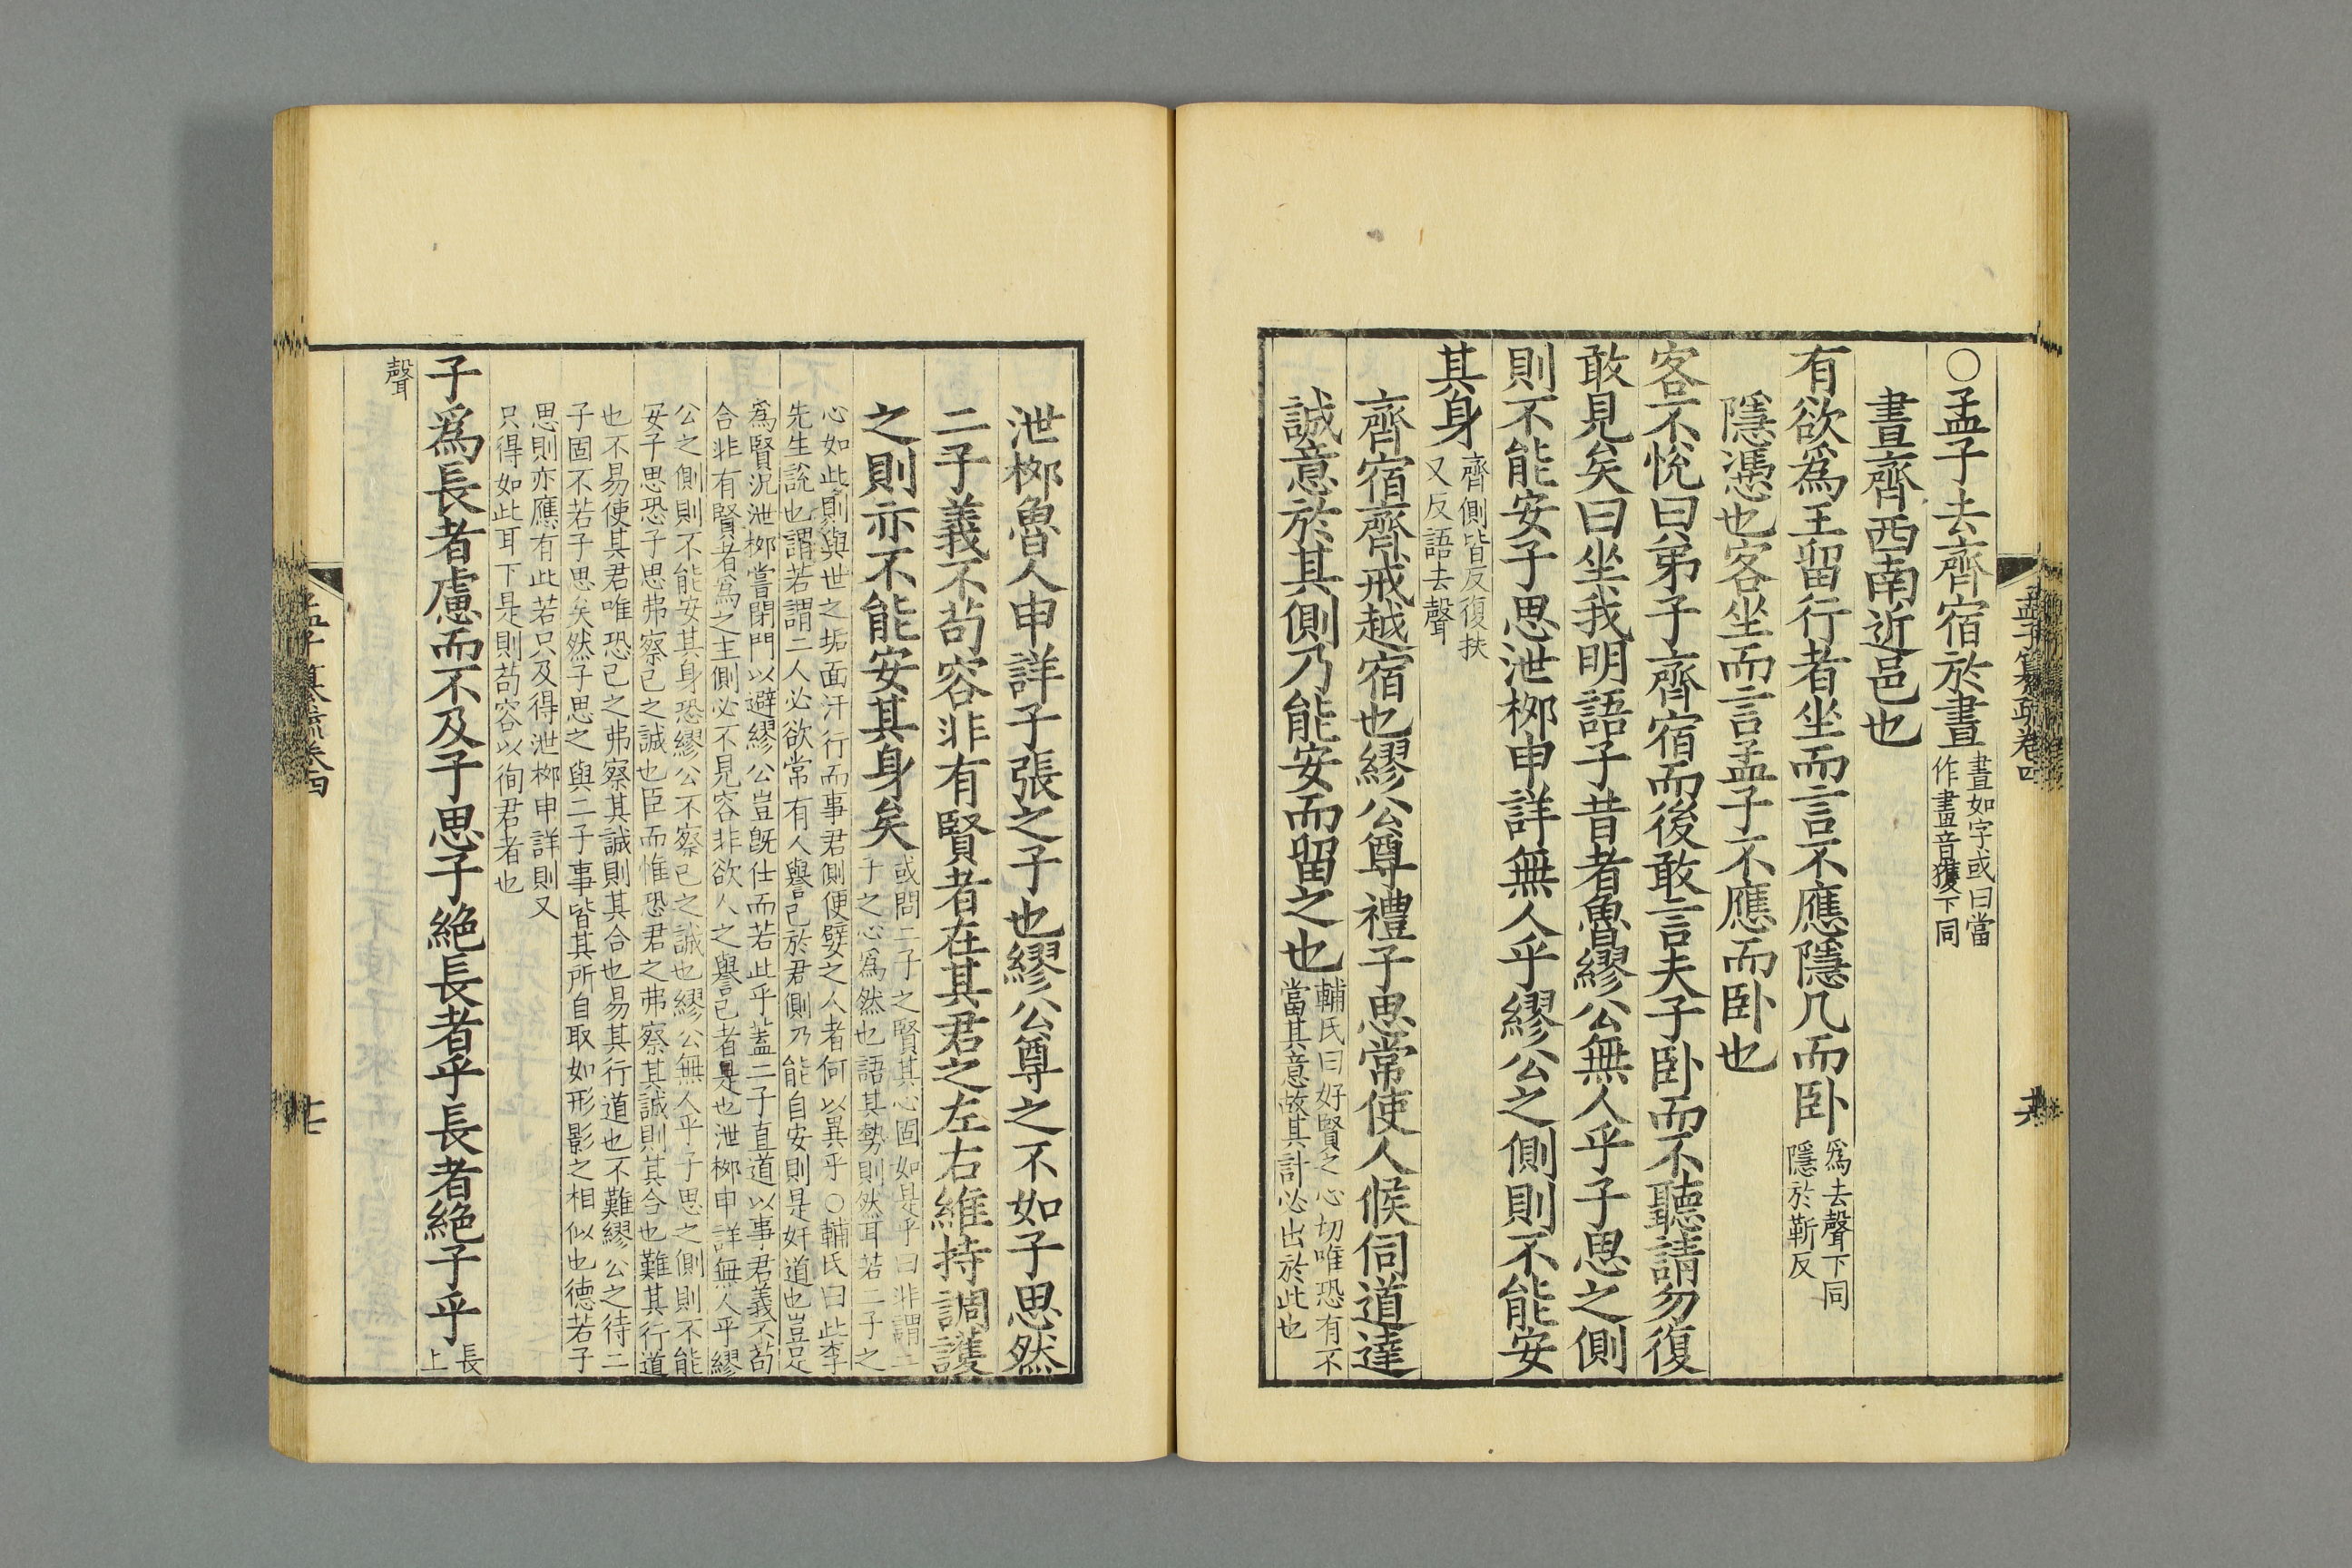 孟子纂疏卷四
○孟子去齊宿於晝晝如字或曰當
作畫音獲下同
晝齊西南近邑也
有欲爲王留行者坐而言不應隱几而卧爲去聲下同
隱於靳反
隱憑也客坐而言孟子不應而卧也
客不悅曰弟子齊宿而後敢言夫子卧而不聽請勿復
敢見矣曰坐我明語子昔者魯繆公無人乎子思之側
則不能安子思泄栁申詳無人乎繆公之側則不能安
其身齊側皆反復扶
又反語去聲
齊宿齊戒越宿也繆公尊禮子思常使人候伺道達
誠意於其側乃能安而留之也輔氏曰好賢之心切唯恐有不
當其意故其計必出於此也
泄栁魯人申詳子張之子也繆公尊之不如子思然
二子義不苟容非有賢者在其君之左右維持調護
之則亦不能安其身矣或問二子之賢其心固如是乎曰非謂二
子之心爲然也語其勢則然耳若二子之
心如此則與世之垢面汙行而事君側便嬖之人者何以異乎○輔氏曰此李
先生說也謂若謂二人必欲常有人譽己於君側乃能自安則是奸道也豈足
爲賢況泄栁嘗閉門以避繆公豈旣仕而若此乎蓋二子直道以事君義不苟
合非有賢者爲之主側必不見容非欲人之譽己者是也泄栁申詳無人乎繆
公之側則不能安其身恐繆公不察己之誠也繆公無人乎子思之側則不能
安子思恐子思弗察己之誠也臣而惟恐君之弗察其誠則其合也難其行道
也不易使其君唯恐己之弗察其誠則其合也易其行道也不難繆公之待二
子固不若子思矣然子思之與二子事皆其所自取如形影之相似也德若子
思則亦應有此若只及得泄栁申詳則又
只得如此耳下是則苟容以徇君者也
子爲長者慮而不及子思子絶長者乎長者絶子乎長
上
聲
孟子纂疏卷四